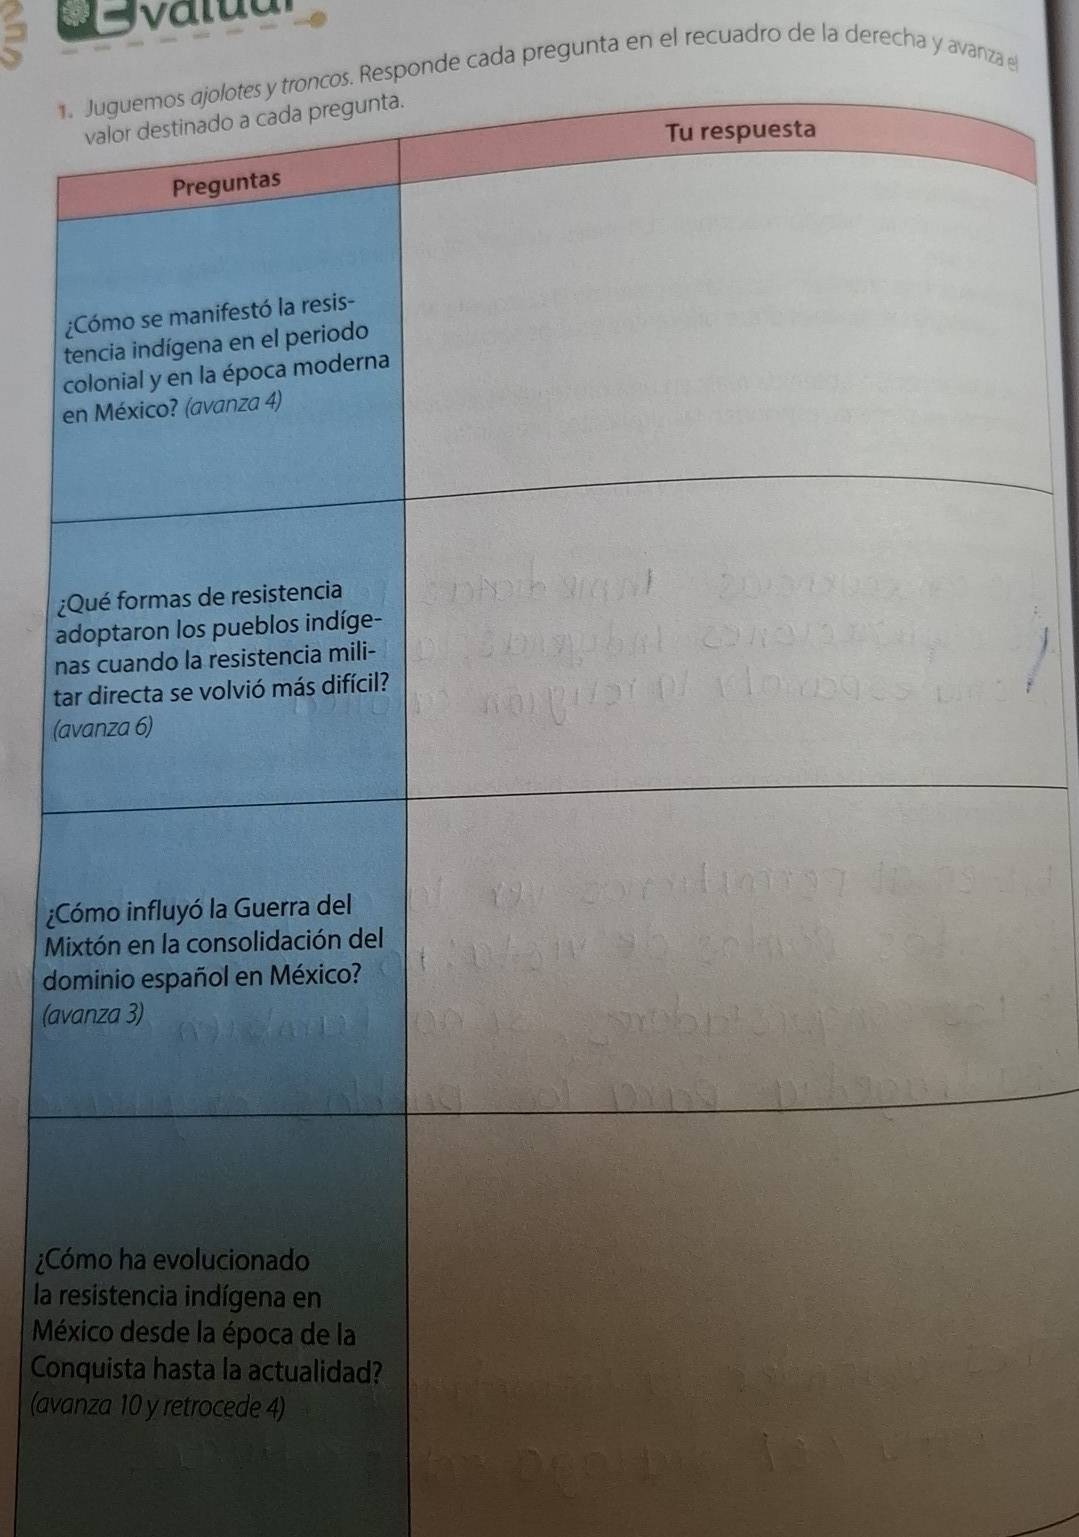 Evaluar
1. Juguemos ajolotes y troncos. Responde cada pregunta en el recuadro de la derecha y avanza el
valor destinado a cada pregunta.
Preguntas
Tu respuesta
¿Cómo se manifestó la resis-
tencia indígena en el periodo
colonial y en la época moderna
en México? (avanza 4)
¿Qué formas de resistencia
adoptaron los pueblos indíge-
nas cuando la resistencia mili-
tar directa se volvió más difícil?
(avanza 6)
¿Cómo influyó la Guerra del
Mixtón en la consolidación del
dominio español en México?
(avanza 3)
¿Cómo ha evolucionado
la resistencia indígena en
México desde la época de la
Conquista hasta la actualidad?
(avanza 10 y retrocede 4)